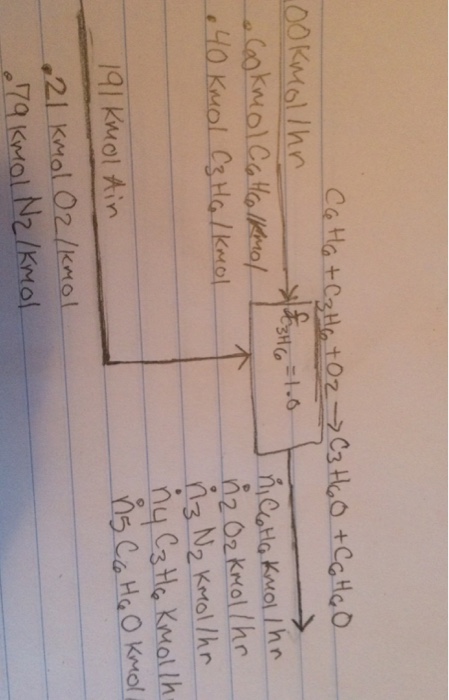 C6H6 + C3H6 + O2 → C3H6O + C6H6O
00 Kmol/hr
.60 kmol C6H6/kmol
.40 Kmol C3H6/kmol
f C3H6 = 1.0
191 Kmol Air
.21 Kmol O2/kmol
.79 Kmol N2/kmol
ṅ1 C6H6 Kmol/hr
ṅ2 O2 Kmol/hr
ṅ3 N2 Kmol/hr
ṅ4 C3H6 Kmol/h
ṅ5 C6H6O Kmol/